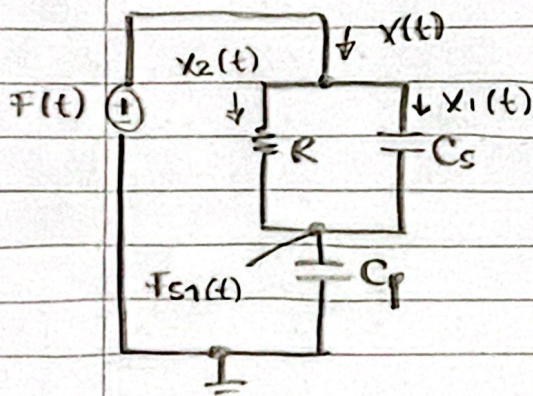 x(t)
x2(t)
F(t)
±
x1(t)
R
Cs
Fs1(t)
Cp